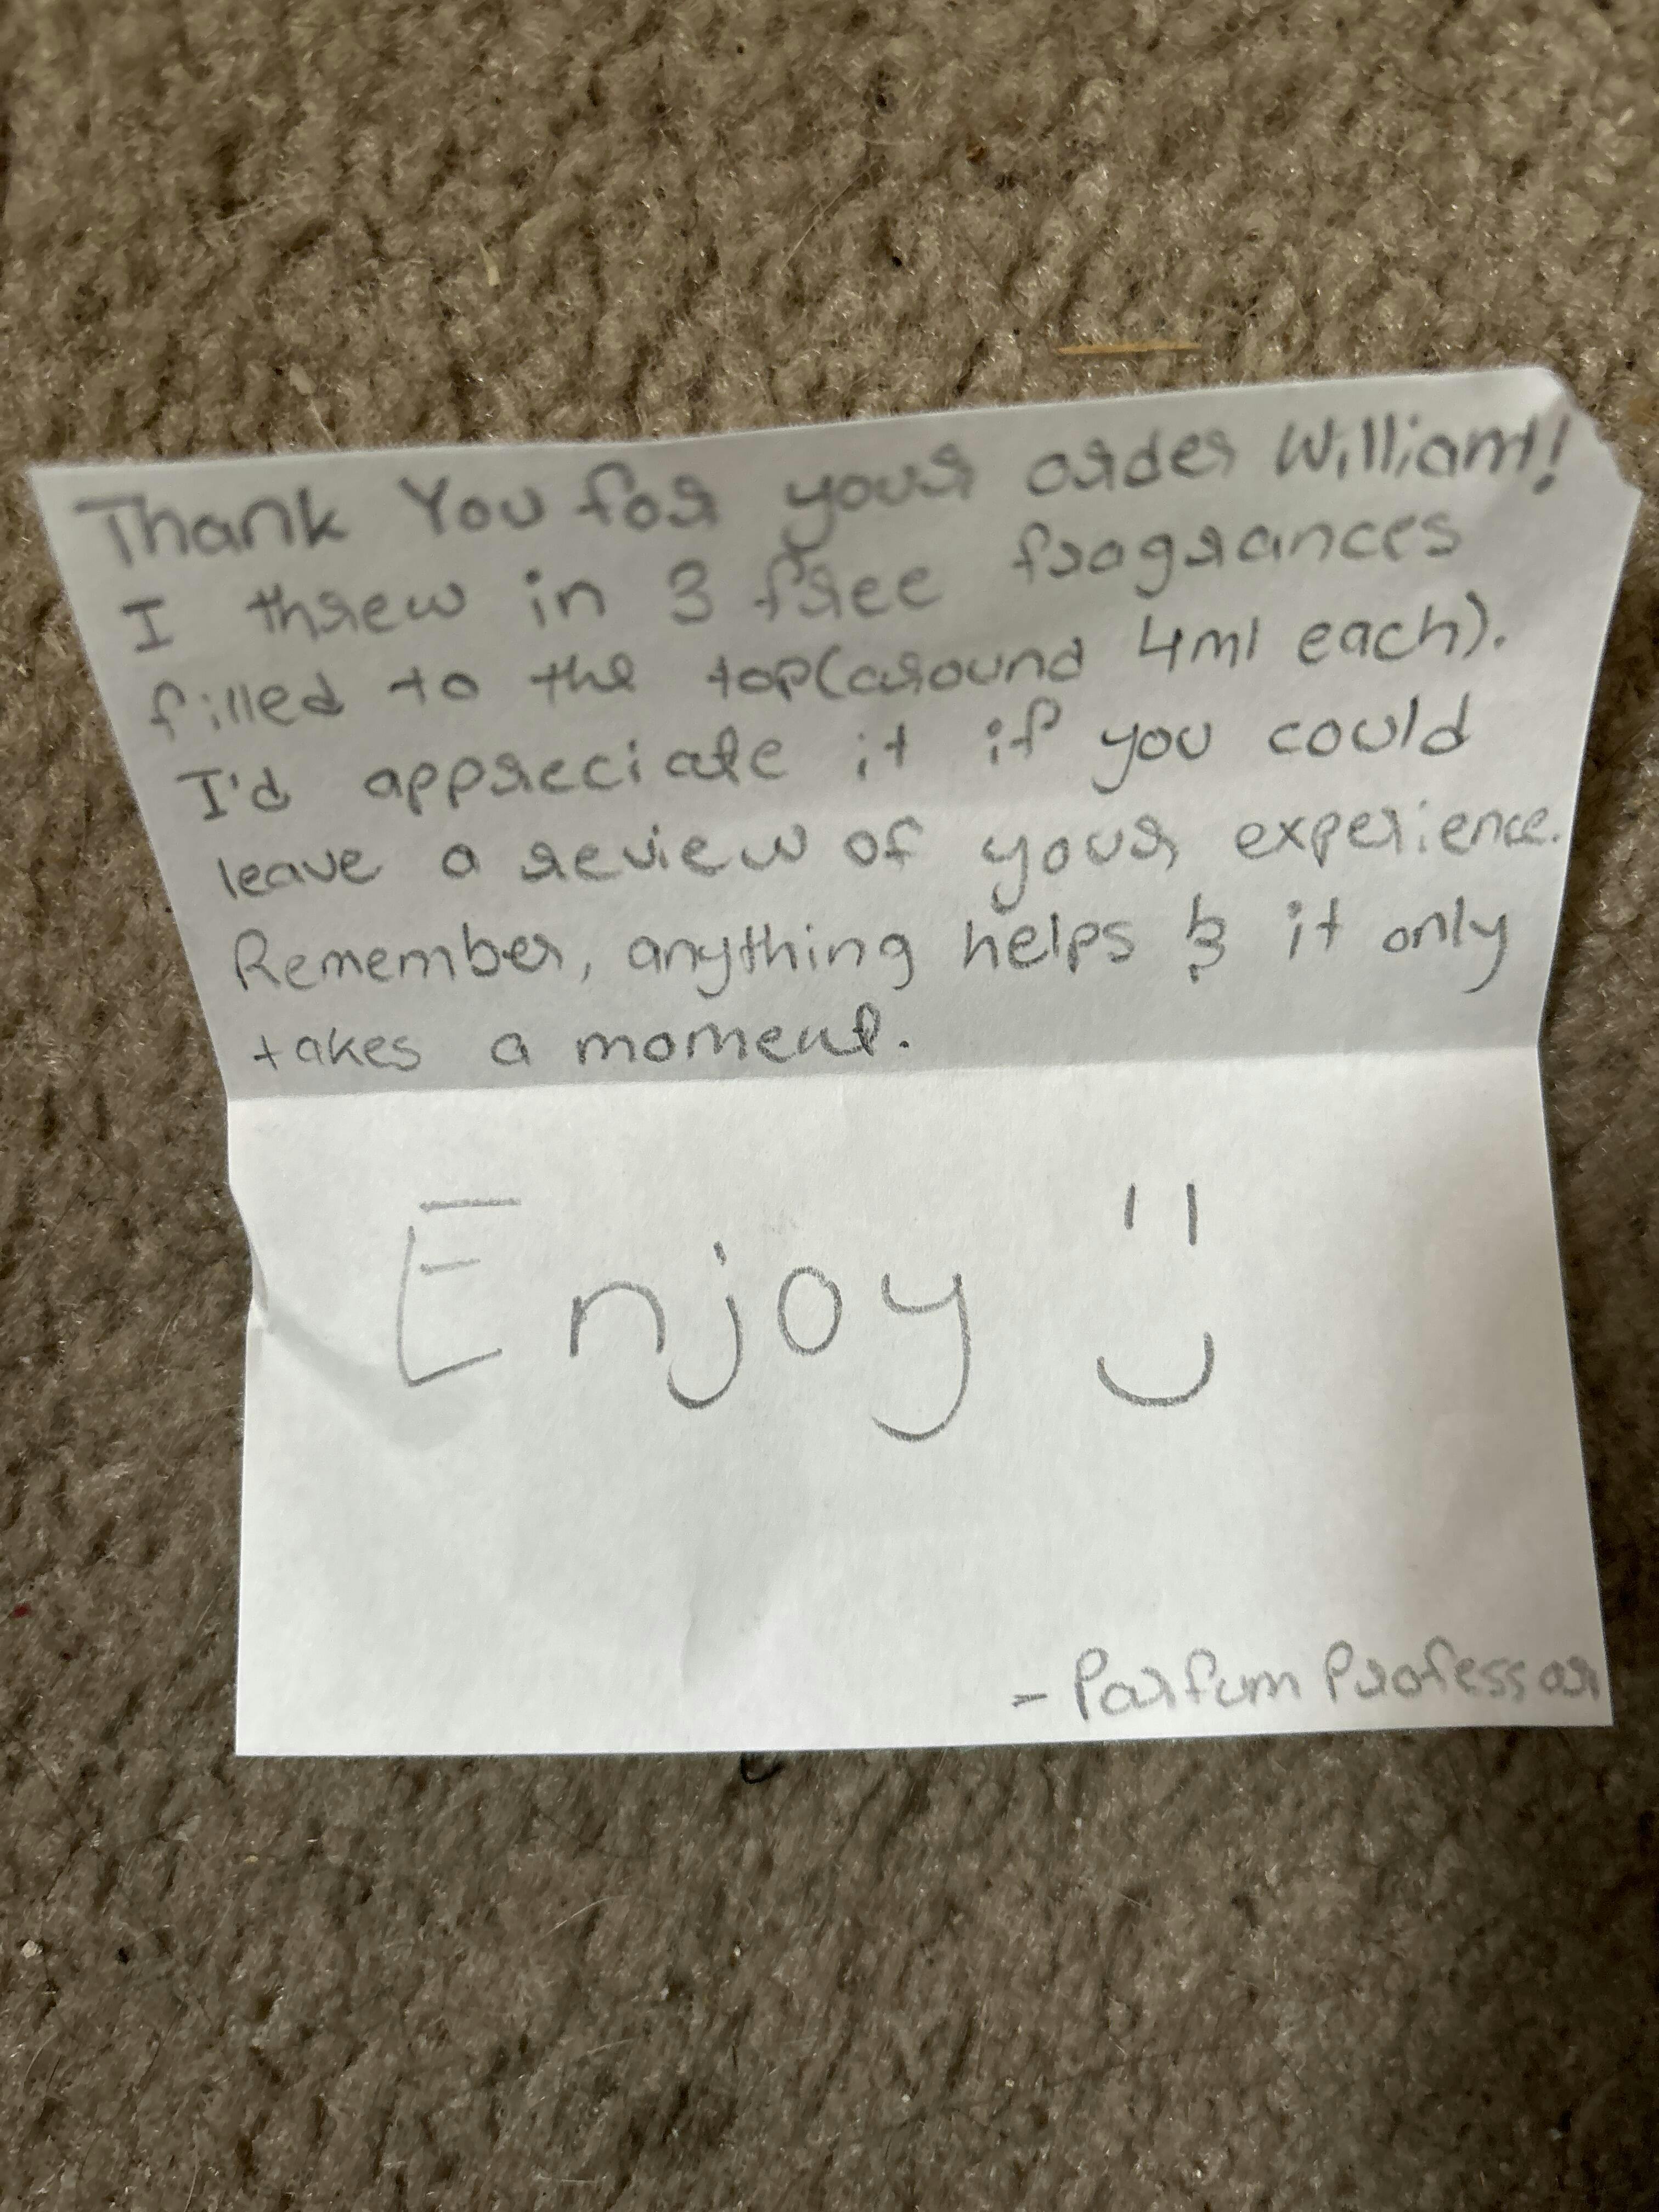 Thank You for your order William!
I threw in 3 free fragrances
filled to the top(around 4ml each).
I'd appreciate it if you could
leave a review of your experience.
Remember, anything helps & it only
takes a moment.
Enjoy :)
- Parfum Professor